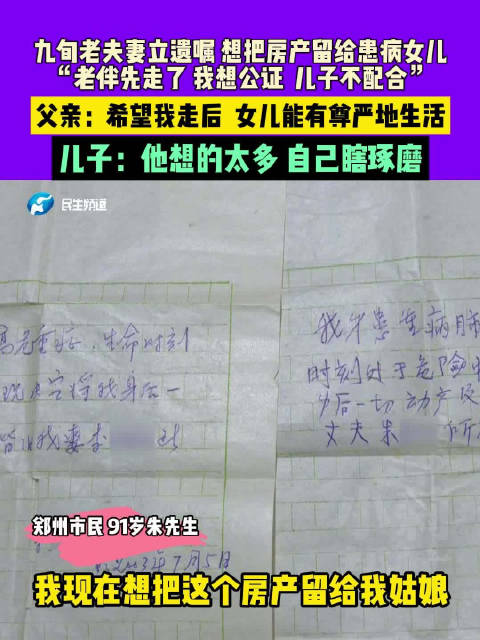 九旬老夫妻立遗嘱 想把房产留给患病女儿
“老伴先走了 我想公证 儿子不配合”
父亲：希望我走后 女儿能有尊严地生活
儿子：他想的太多 自己瞎琢磨
民生频道
生命时刻
将我身后一
我妻李
我年患重病肺
时刻处于危险
后一切动产及
丈夫朱 所
年7月5日
郑州市民 91岁朱先生
我现在想把这个房产留给我姑娘